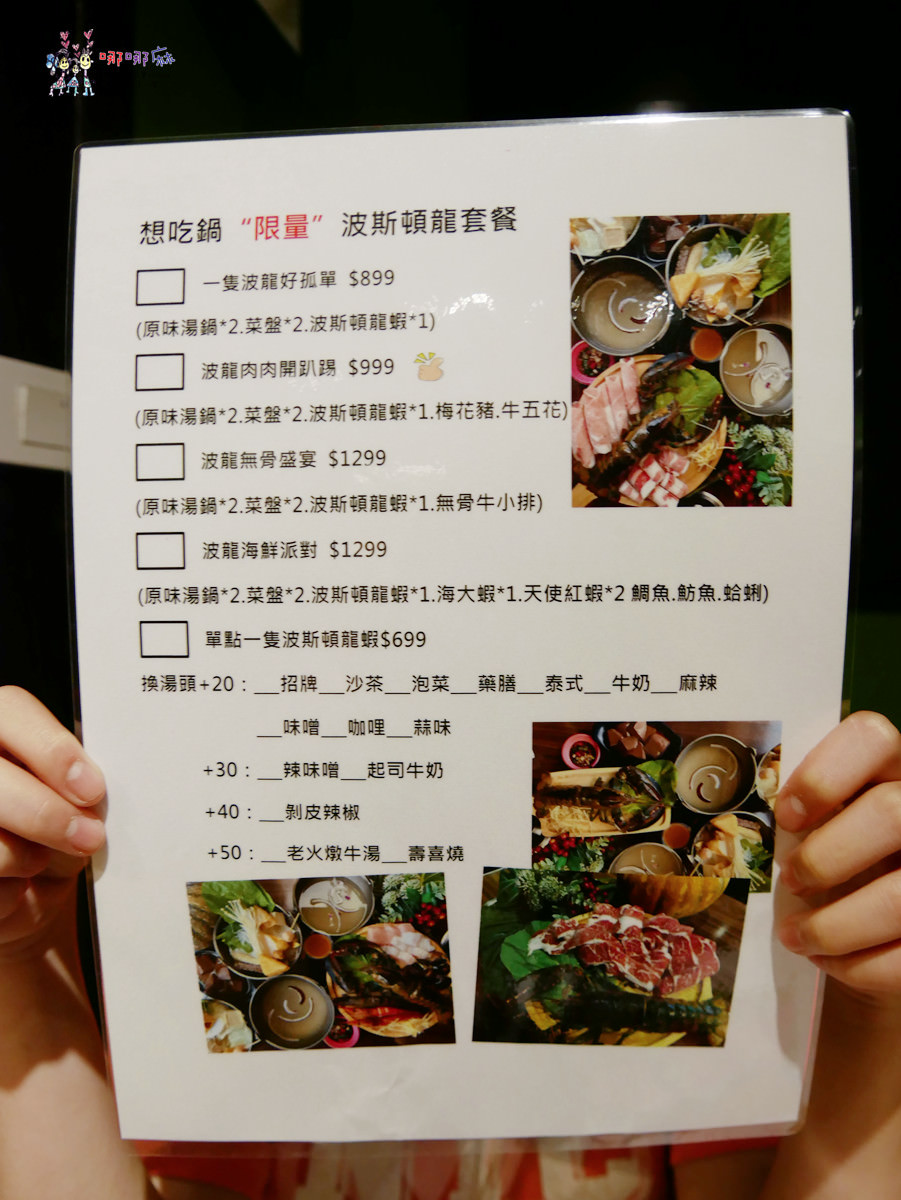 哪哪麻
想吃鍋 “限量” 波斯頓龍套餐
一隻波龍好孤單 $899
(原味湯鍋*2.菜盤*2.波斯頓龍蝦*1)
波龍肉肉開趴踢 $999
(原味湯鍋*2.菜盤*2.波斯頓龍蝦*1.梅花豬.牛五花)
波龍無骨盛宴 $1299
(原味湯鍋*2.菜盤*2.波斯頓龍蝦*1.無骨牛小排)
波龍海鮮派對 $1299
(原味湯鍋*2.菜盤*2.波斯頓龍蝦*1.海大蝦*1.天使紅蝦*2 鯛魚.魴魚.蛤蜊)
單點一隻波斯頓龍蝦$699
換湯頭+20：__招牌__沙茶__泡菜__藥膳__泰式__牛奶__麻辣
__味噌__咖哩__蒜味
+30：__辣味噌__起司牛奶
+40：__剝皮辣椒
+50：__老火燉牛湯__壽喜燒